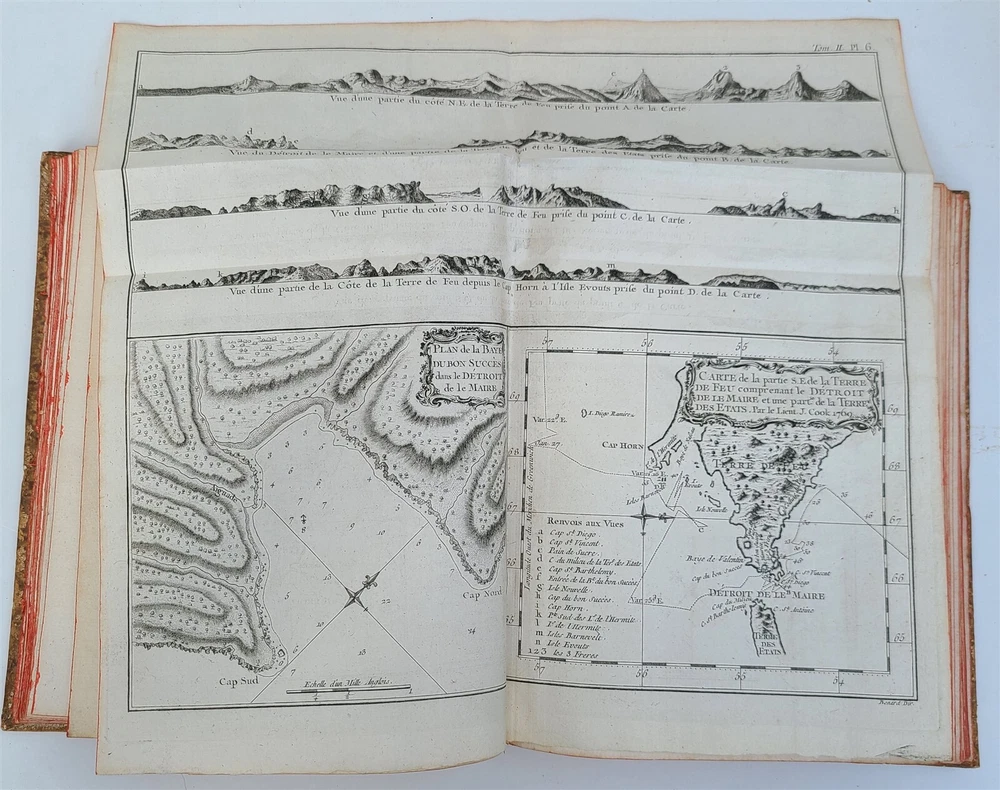 Tom. II. Pl. 6
Vue d'une partie du côté N.E. de la Terre de Feu prise du point A. de la Carte
Vue du Détroit de le Maire et d'une partie de la Terre de Feu et de la Terre des Etats prise du point B. de la Carte
Vue d'une partie du côté S.O. de la Terre de Feu prise du point C. de la Carte.
Vue d'une partie de la Côte de la Terre de Feu depuis le Cap Horn à l'Isle Evouts prise du point D. de la Carte.
PLAN de la BAYE
DU BON SUCCES
dans le DETROIT
de le MAIRE
Cap Nord
Cap Sud
Echelle d'un Mille Anglois.
CARTE de la partie S.E. de la TERRE
DE FEU comprenant le DÉTROIT
DE LE MAIRE et une part.e de la TERRE
DES ETATS. Par le Lieut. J. Cook 1769.
57 56 55 54
I. Diego Ramires
Var. 22d E.
CAP HORN
TERRE DE FEU
Isles Barnevelt
I. Evouts
Isle Nouvelle
Renvois aux Vues
a Cap St. Diego.
b Cap St. Vincent.
c Pain de Sucre.
d C. du milieu de la Ter. des Etats
e Cap St. Barthelemy.
f Entrée de la B. du bon Succès
g Isle Nouvelle.
h Cap du bon Succès.
i Cap Horn.
k Pte Sud des Is. de l'Hermite.
l Is. de l'Hermite.
m Isles Barnevelt.
n Isle Evouts
1 2 3 les 3 Freres
Baye de Valentin
Cap du bon Succès
C. St. Vincent
St. Diego
DETROIT DE LE MAIRE
Cap du Milieu
C. St. Barthelemi
C. St. Antoine
TERRE
DES
ETATS
57 56 55 54
Benard Dir.